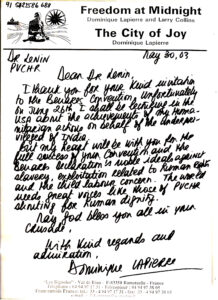 91 5422586 688
Freedom at Midnight
Dominique Lapierre and Larry Collins
The City of Joy
Dominique Lapierre
May 30, 03
Dr Lenin
PVCHR
Dear Dr Lenin,
I thank you for your kind invitation
to the Benares Convention. Unfortunately
on June 26th I shall be
USA about the achievements of my Huma-
nitarian action on behalf of the Underpri-
vileged of India.
But my heart will be with you for the
full success of your Convention and the
Benares declaration's noble ideals against
slavery, exploitation related to human rights
and the child labour concern. The world
needs great voices like those of PVCHR
shouting for human dignity.
May God bless you all in your
Crusade.
With kind regards and
admiration.
Dominique LAPIERRE